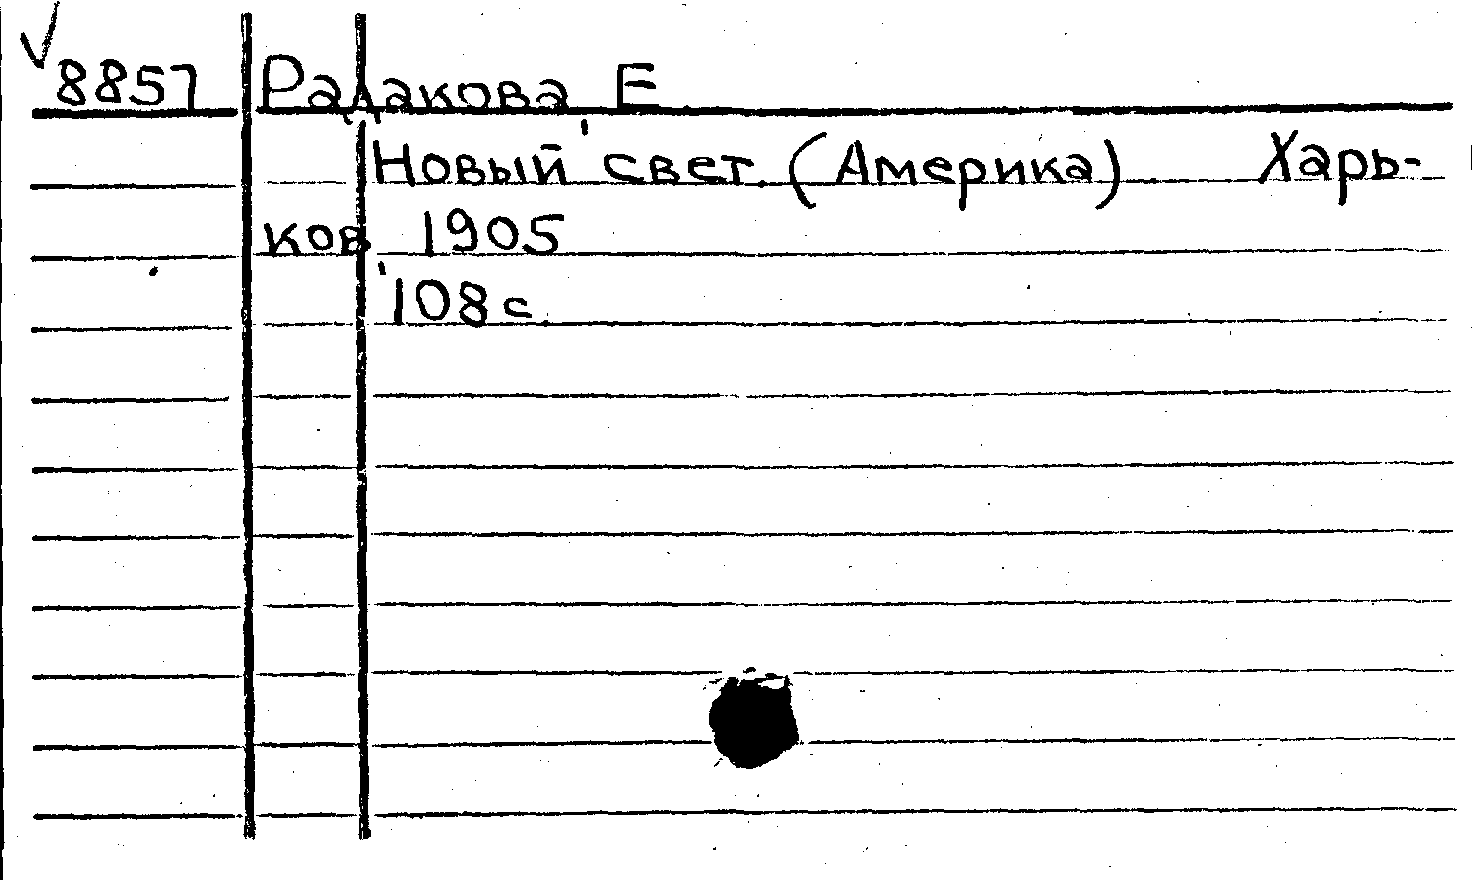 8857 Радакова Е
Новый свет. (Америка) Харь-
ков 1905
108 с.